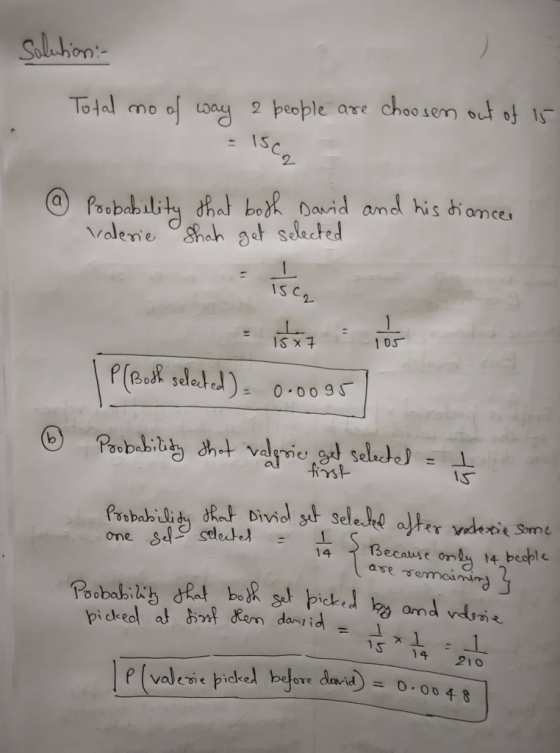 Solution:-
Total no of way 2 people are choosen out of 15
= 15C2
(a) Probability that both David and his fiancee
Valerie Shah get selected
= 1/15C2
= 1/15×7 = 1/105
P(Both selected) = 0.0095
(b) Probability that valerie get selected = 1/15
at first
Probability that Divid get selected after valerie some
one get selected = 1/14 { Because only 14 people
are remaining }
Probability that both get picked by and valerie
picked at first then david = 1/15 × 1/14 = 1/210
P(valerie picked before david) = 0.0048